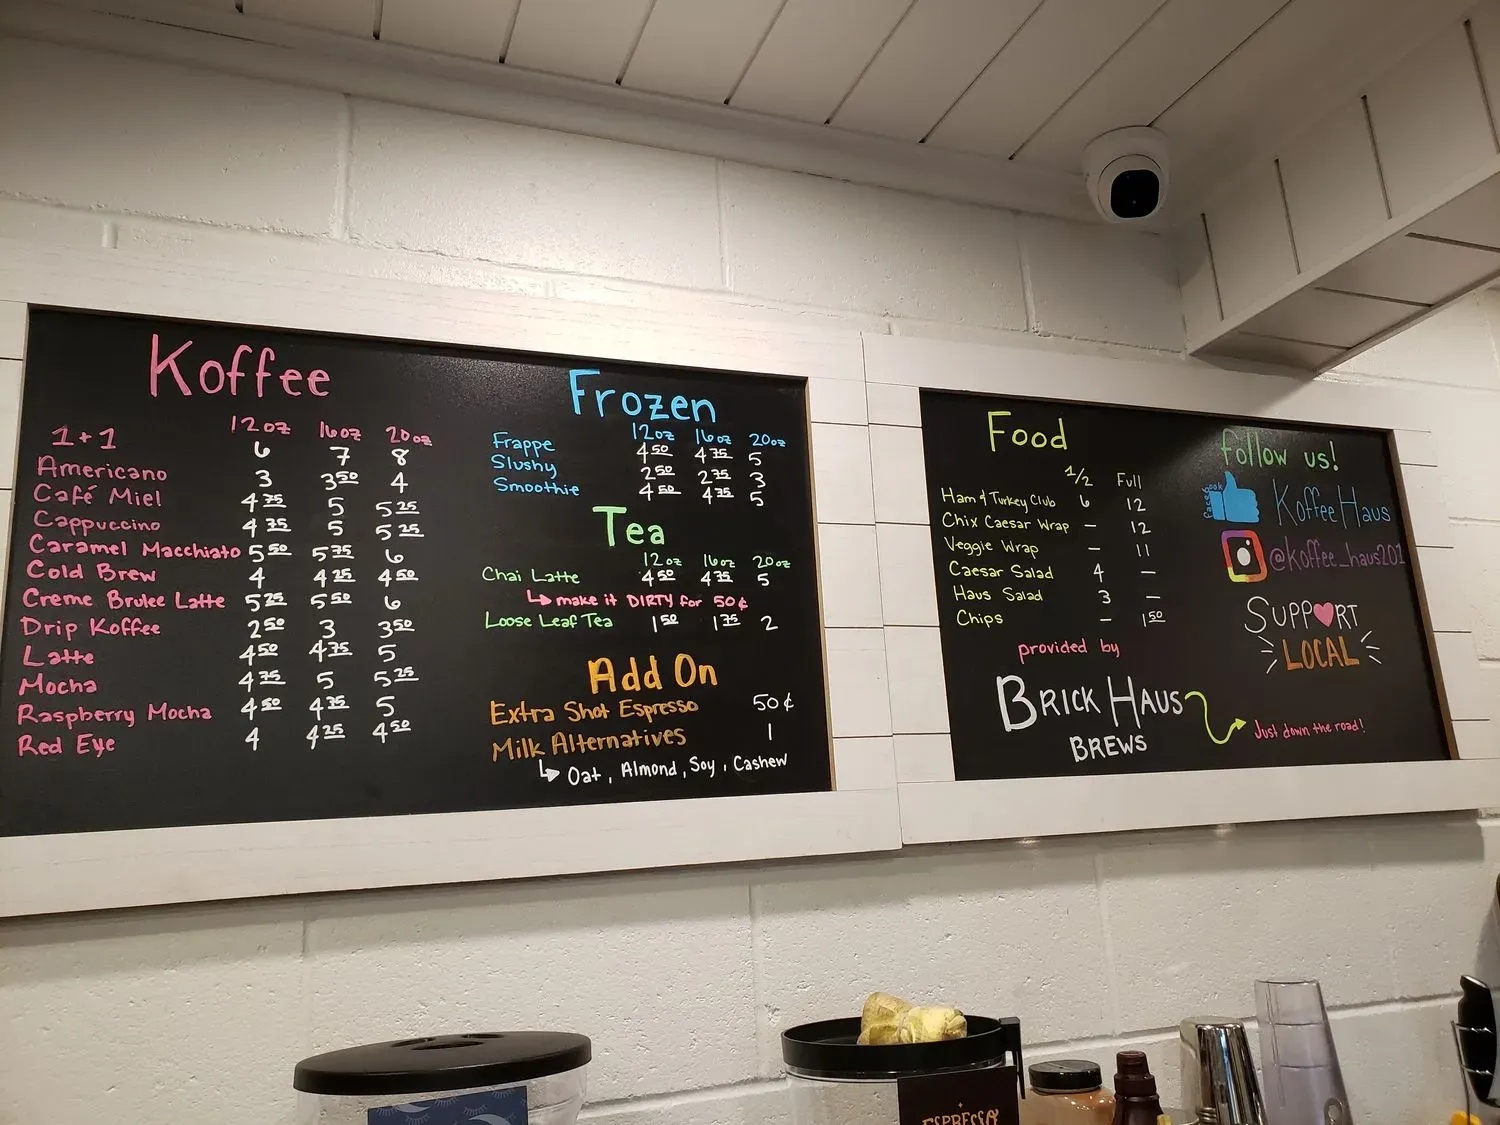 Koffee
12oz 16oz 20oz
1+1 6 7 8
Americano 3 350 4
Café Miel 4 75 5 5 25
Cappuccino 4 75 5 5 25
Caramel Macchiato 5 50 5 75 6
Cold Brew 4 4 25 4 50
Creme Brulee Latte 5 25 5 50 6
Drip Koffee 2 50 3 3 50
Latte 4 50 4 75 5
Mocha 4 75 5 5 25
Raspberry Mocha 4 50 4 75 5
Red Eye 4 4 25 4 50
Frozen
12oz 16oz 20oz
Frappe 4 50 4 75 5
Slushy 2 50 2 75 3
Smoothie 4 50 4 75 5
Tea
12oz 16oz 20oz
Chai Latte 4 50 4 75 5
make it DIRTY for 50¢
Loose Leaf Tea 1 50 1 75 2
Add On
Extra Shot Espresso 50¢
Milk Alternatives 1
Oat, Almond, Soy, Cashew
Food
1/2 Full
Ham & Turkey Club 6 12
Chix Caesar Wrap – 12
Veggie Wrap – 11
Caesar Salad 4 –
Haus Salad 3 –
Chips – 1 50
provided by
BRICK HAUS
BREWS
Just down the road!
follow us!
facebook
Koffee Haus
@koffee_haus201
SUPPORT
LOCAL
ESPRESSO